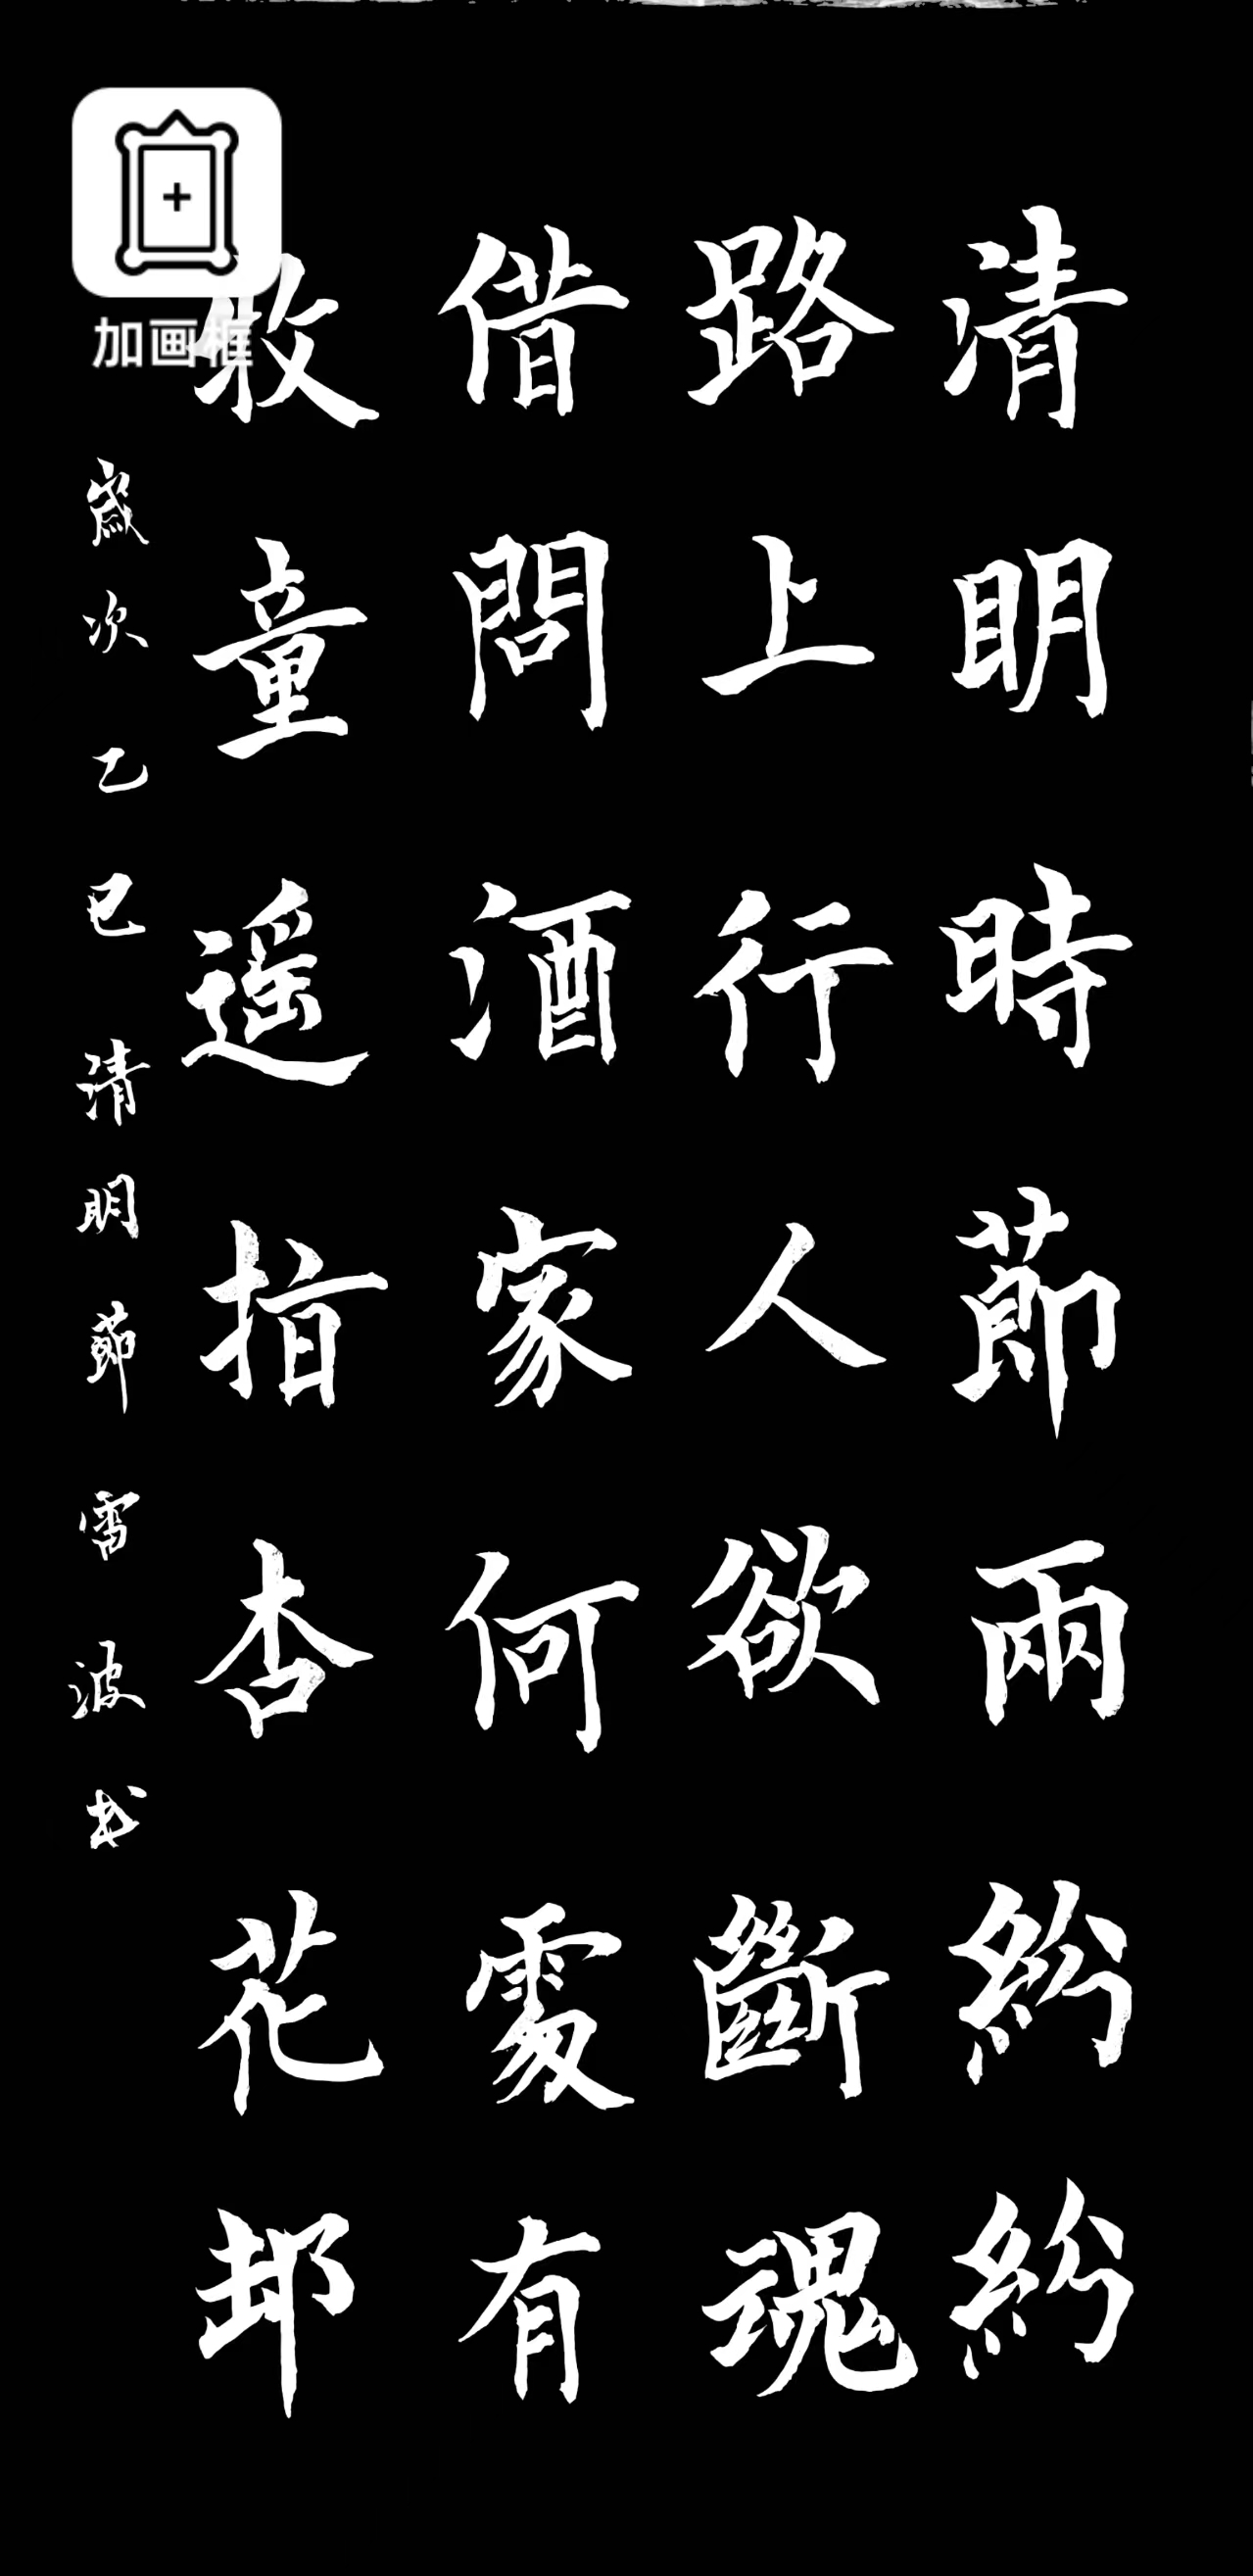 加画框
清明時節兩紛紛
路上行人欲斷魂
借問酒家何處有
牧童遥指杏花邨
歲次乙巳清明節雷波书